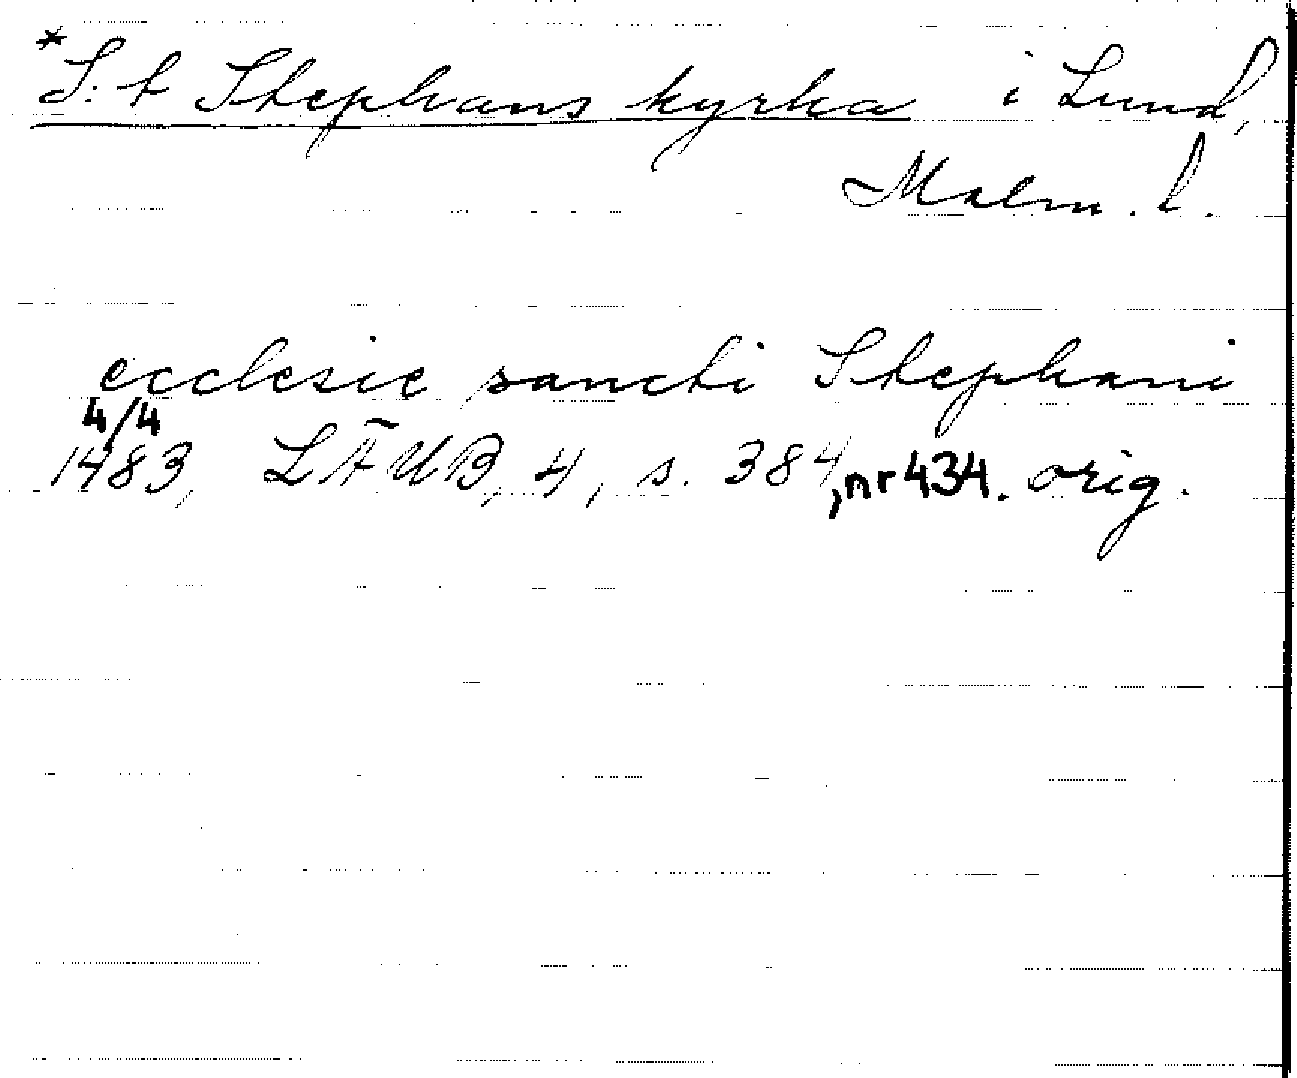 *S:t Stephans kyrka i Lund,
Malm. l.
ecclesie sancti Stephani
4/4
1483, LÄUB, 4, s. 384, nr 434. orig.